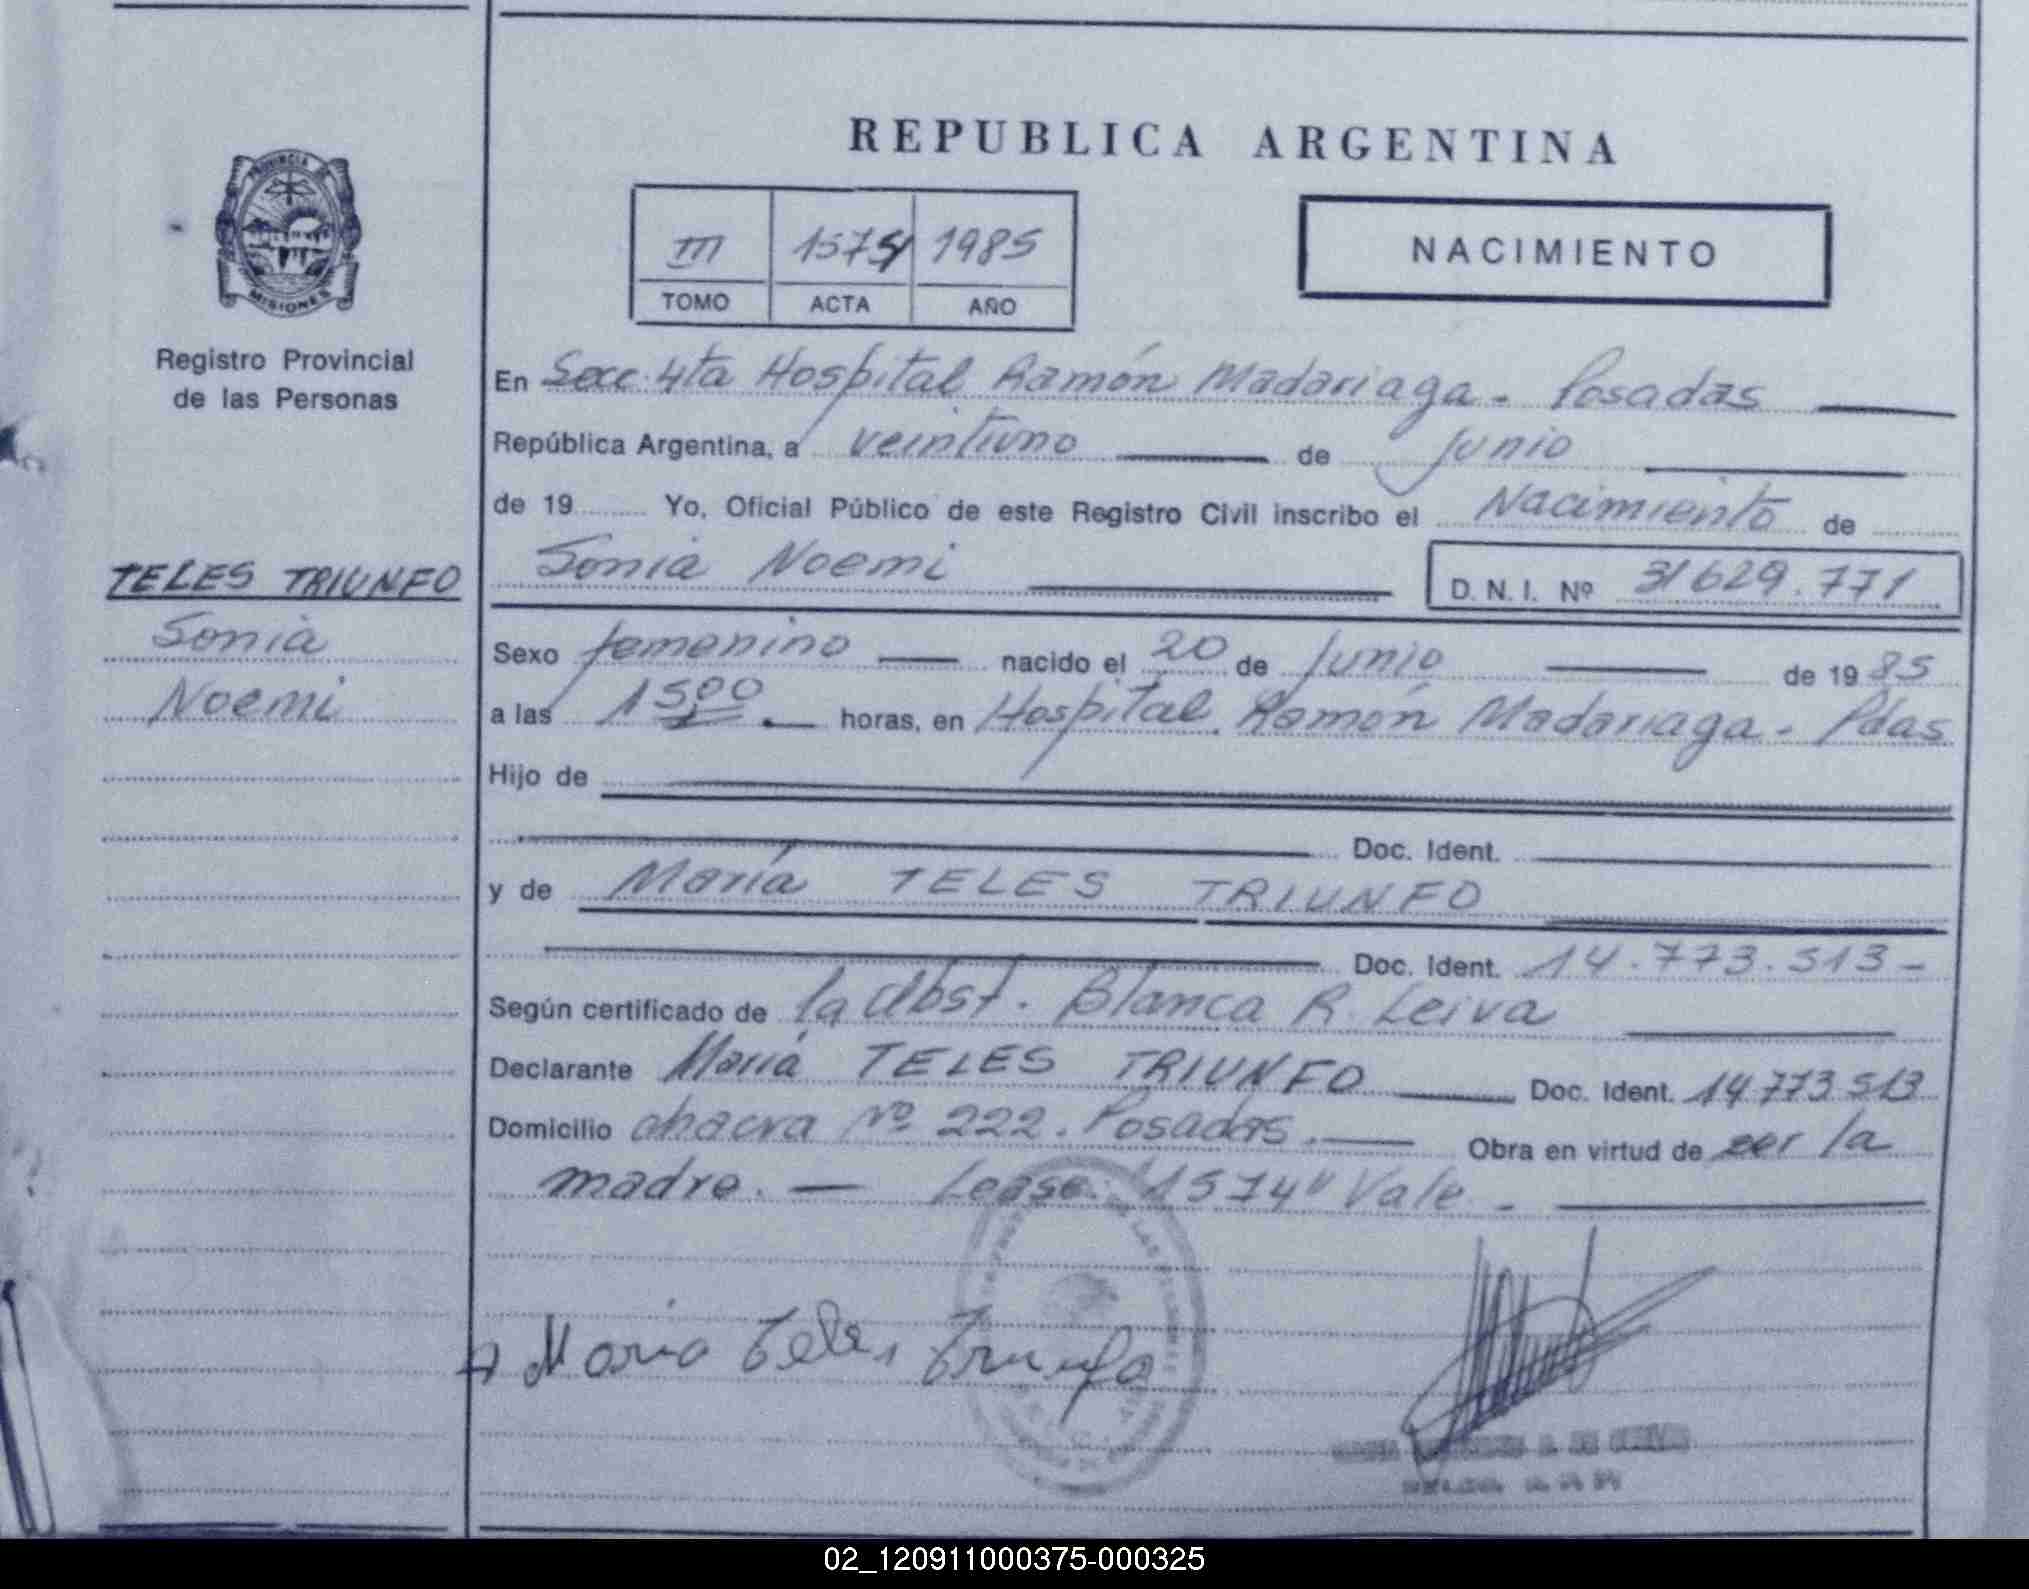 REPUBLICA ARGENTINA
PROVINCIA DE
MISIONES
Registro Provincial
de las Personas
III 1574 1985
TOMO ACTA AÑO
NACIMIENTO
En Secc. 4ta Hospital Ramón Madariaga - Posadas
República Argentina, a veintiuno de junio
de 19 Yo, Oficial Público de este Registro Civil inscribo el Nacimiento de
Sonia Noemi D. N. I. Nº 31629.771
TELES TRIUNFO
Sonia
Noemi
Sexo femenino nacido el 20 de Junio de 1985
a las 15,00 horas, en Hospital Ramón Madariaga - Pdas
Hijo de
Doc. Ident.
y de María TELES TRIUNFO
Doc. Ident. 14.773.513-
Según certificado de la Obst. Blanca R. Leiva
Declarante María TELES TRIUNFO Doc. Ident. 14.773.513
Domicilio chacra Nº 222. Posadas. Obra en virtud de ser la
madre. — Lease: "1574" Vale -
Maria Teles Triunfo
02_120911000375-000325